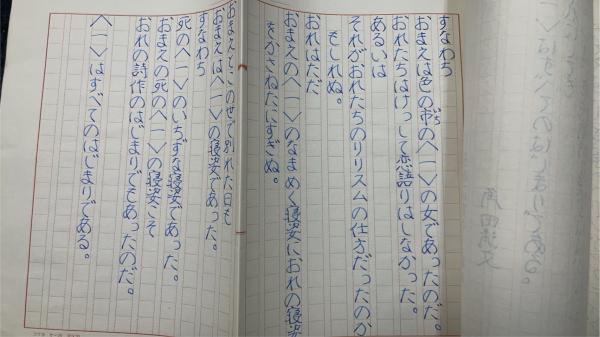 すなわち
おまえは色の市の〈一〉の女であったのだ。
いち
おれたちはけっして恋語りはしなかった。
あるいは
それがおれたちのリリスムの仕方だったのか
もしれぬ。
おれはただ
おまえの〈一〉のなまめく寝姿におれの寝姿
をかさねたにすぎぬ。
おまえとこのせで別れた日も
おまえは〈一〉の寝姿であった。
すなわち
死の〈一〉のいちずな寝姿であった。
おまえの死の〈一〉の寝姿こそ
おれの詩作のはじまりであったのだ。
〈一〉はすべてのはじまりである。